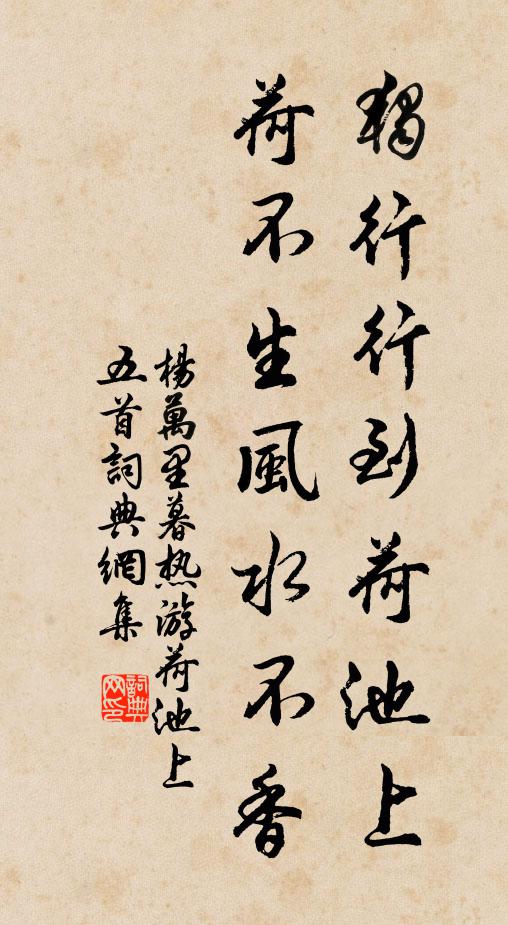 獨行行到荷池上
荷不生風水不香
楊萬里暮热游荷池上
五首詞典網集
詞典網印